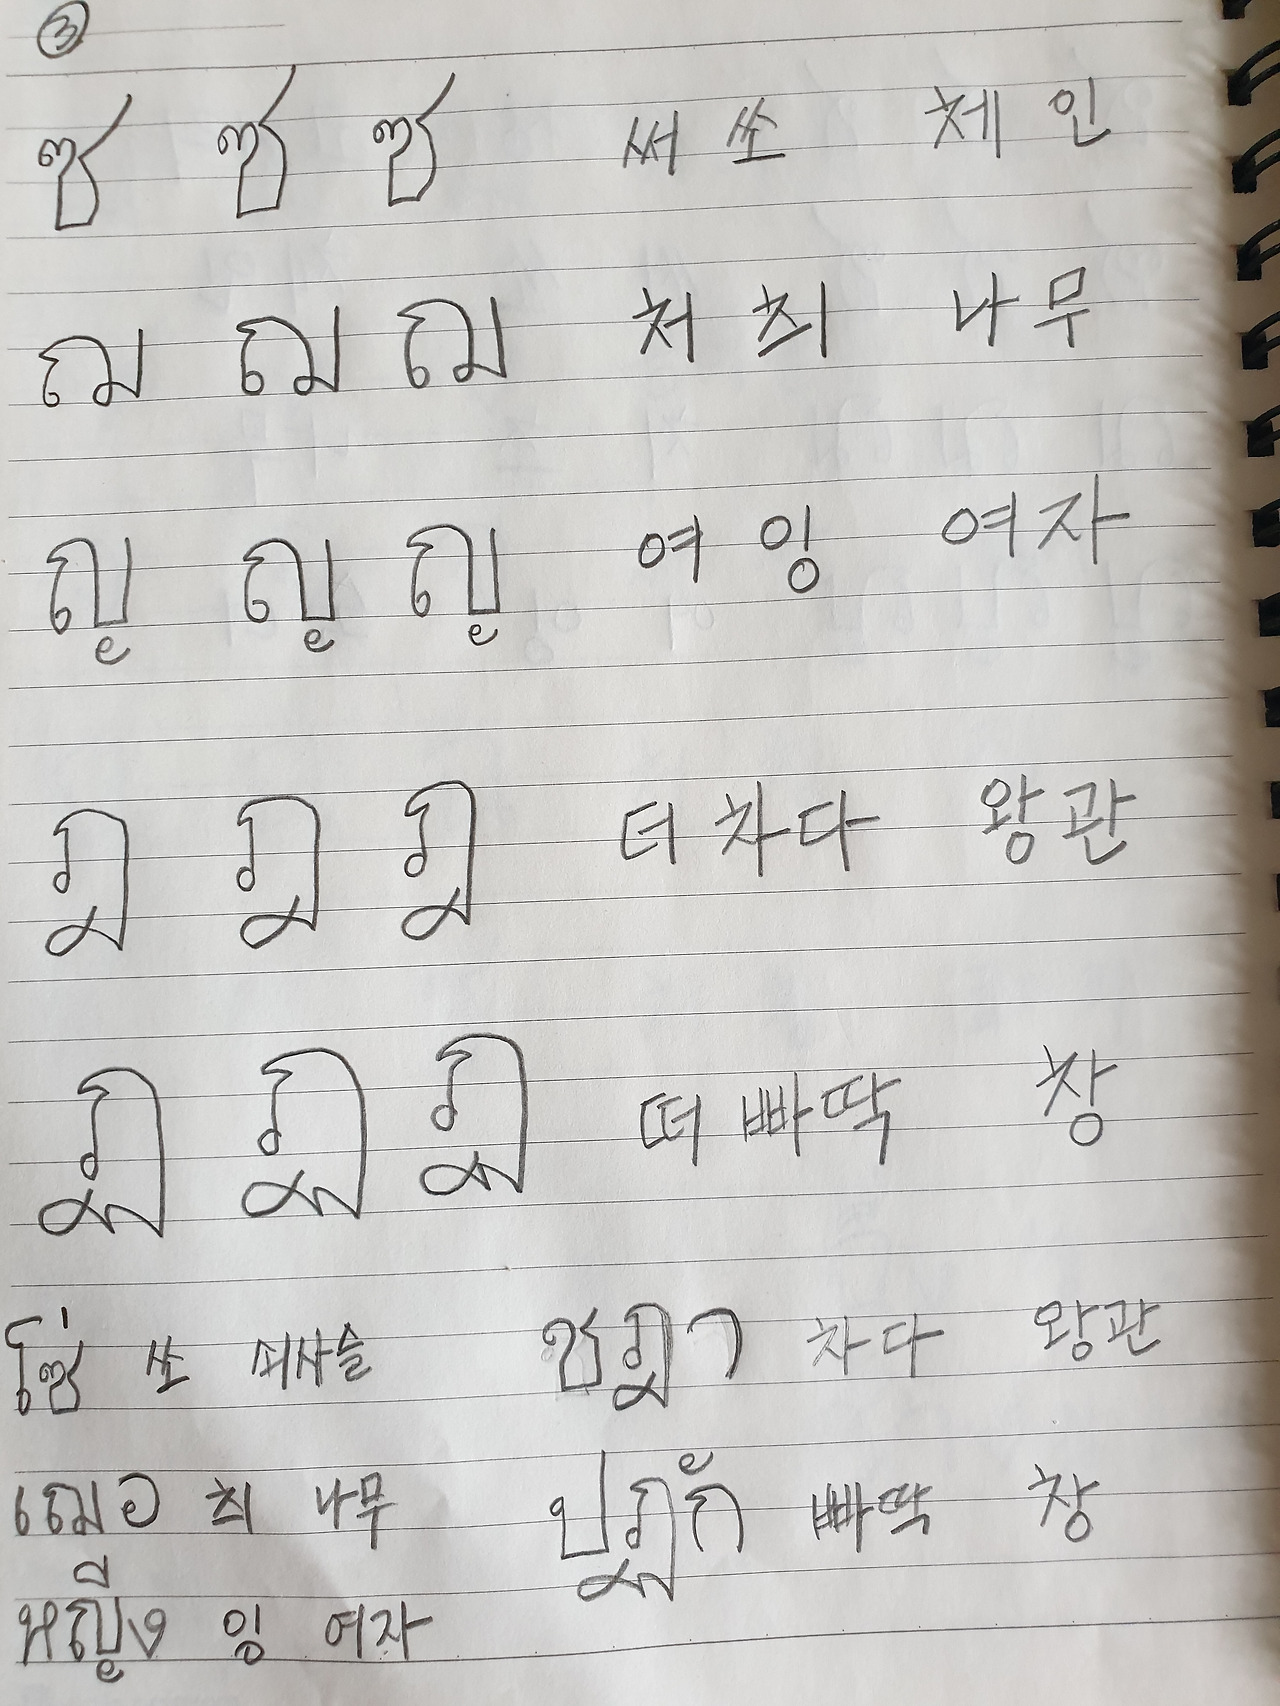 ③
ซ ซ ซ 써 쏘 체인
ฌ ฌ ฌ 처 츠ㅓ 나무
ญ ญ ญ 여 잉 여자
ฎ ฎ ฎ 더 차다 왕관
ฏ ฏ ฏ 떠 빠딱 창
โซ่ 쏘 쇠사슬 ชฎา 차다 왕관
เฌอ 츠ㅓ 나무 ปฏัก 빠딱 창
หญิง 잉 여자